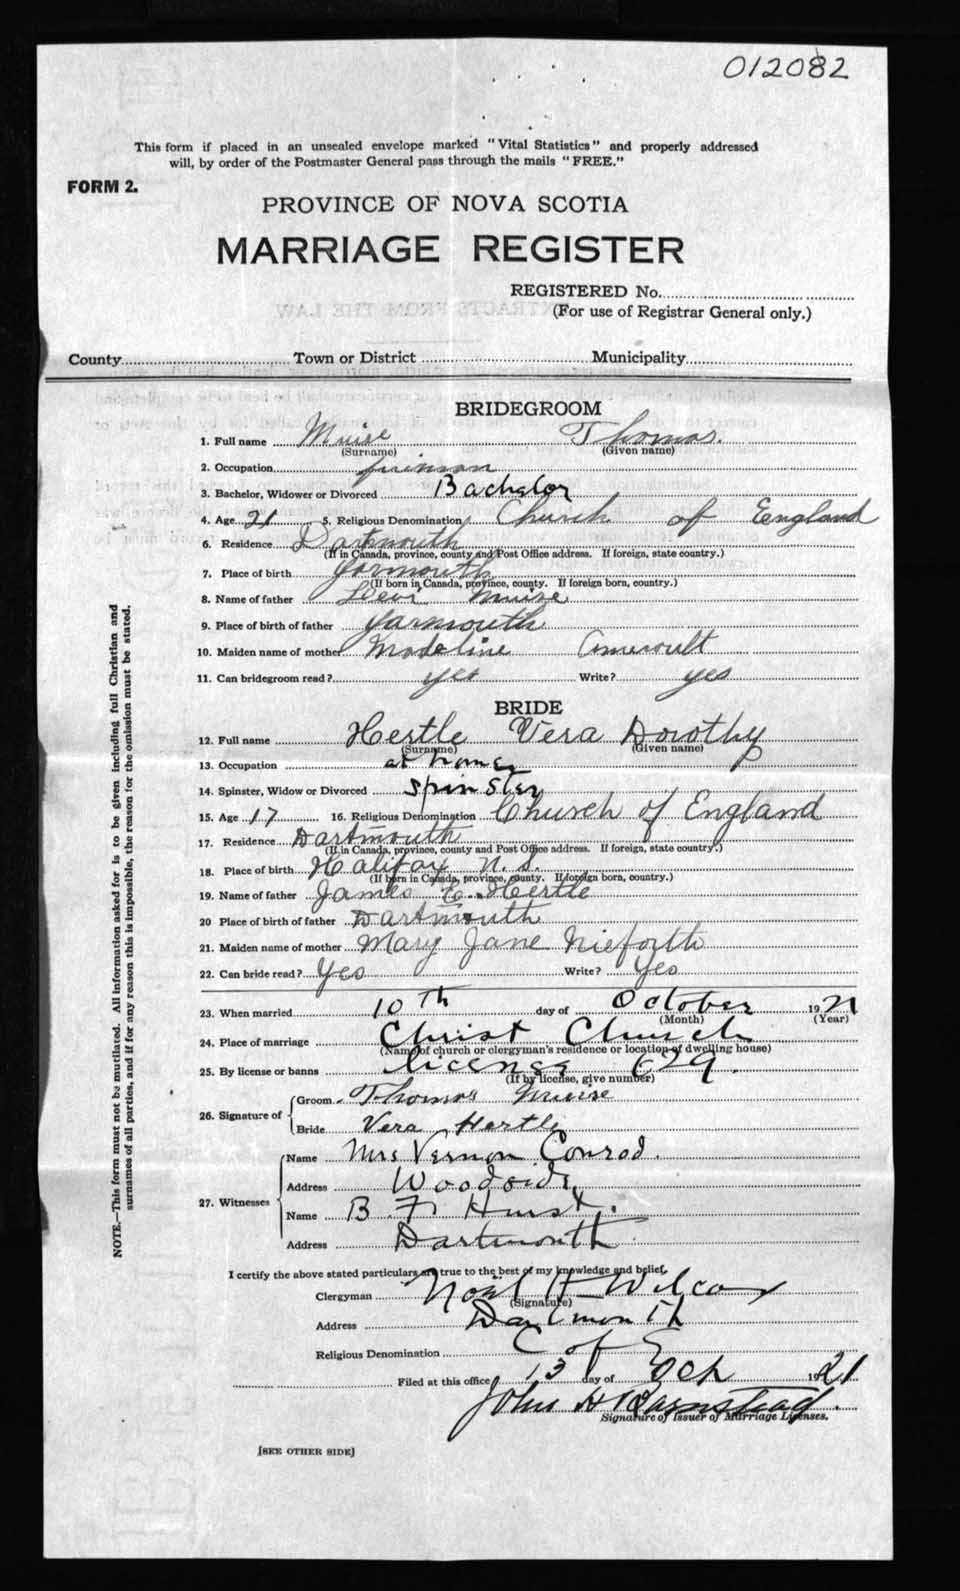 012082
This form if placed in an unsealed envelope marked "Vital Statistics" and properly addressed
will, by order of the Postmaster General pass through the mails "FREE."
FORM 2.
PROVINCE OF NOVA SCOTIA
MARRIAGE REGISTER
REGISTERED No.
(For use of Registrar General only.)
County Town or District Municipality
BRIDEGROOM
1. Full name Muise Thomas.
(Surname) (Given name)
2. Occupation
3. Bachelor, Widower or Divorced Bachelor
4. Age 21 5. Religious Denomination Church of England
6. Residence Dartmouth
(If in Canada, province, county and Post Office address. If foreign, state country.)
7. Place of birth Yarmouth
(If born in Canada, province, county. If foreign born, country.)
8. Name of father Levi Muise
9. Place of birth of father Yarmouth
10. Maiden name of mother Madeline Ameroult
11. Can bridegroom read? yes Write? yes
BRIDE
12. Full name Hertle Vera Dorothy
(Surname) (Given name)
13. Occupation at home
14. Spinster, Widow or Divorced Spinster
15. Age 17 16. Religious Denomination Church of England
17. Residence Dartmouth
(If in Canada, province, county and Post Office address. If foreign, state country.)
18. Place of birth Halifax N.S.
(If born in Canada, province, county. If foreign born, country.)
19. Name of father James E. Hertle
20 Place of birth of father Dartmouth
21. Maiden name of mother Mary Jane Nieforth
22. Can bride read? Yes Write? Yes
23. When married 10th day of October 1921
(Month) (Year)
24. Place of marriage Christ Church
(Name of church or clergyman's residence or location of dwelling house)
25. By license or banns license 629.
(If by license, give number)
26. Signature of Groom Thomas Muise
Bride Vera Hertle
27. Witnesses Name Mrs Vernon Conrod.
Address Woodside,
Name B F Hurst.
Address Dartmouth
I certify the above stated particulars are true to the best of my knowledge and belief.
Clergyman Noël H Wilcox
(Signature)
Address Dartmouth
Religious Denomination C of E
Filed at this office 13 day of Oct 1921
John H Barnstead.
Signature of Issuer of Marriage Licenses.
[SEE OTHER SIDE]
NOTE.—This form must not be mutilated. All information asked for is to be given including full Christian and
surnames of all parties, and if for any reason this is impossible, the reason for the omission must be stated.